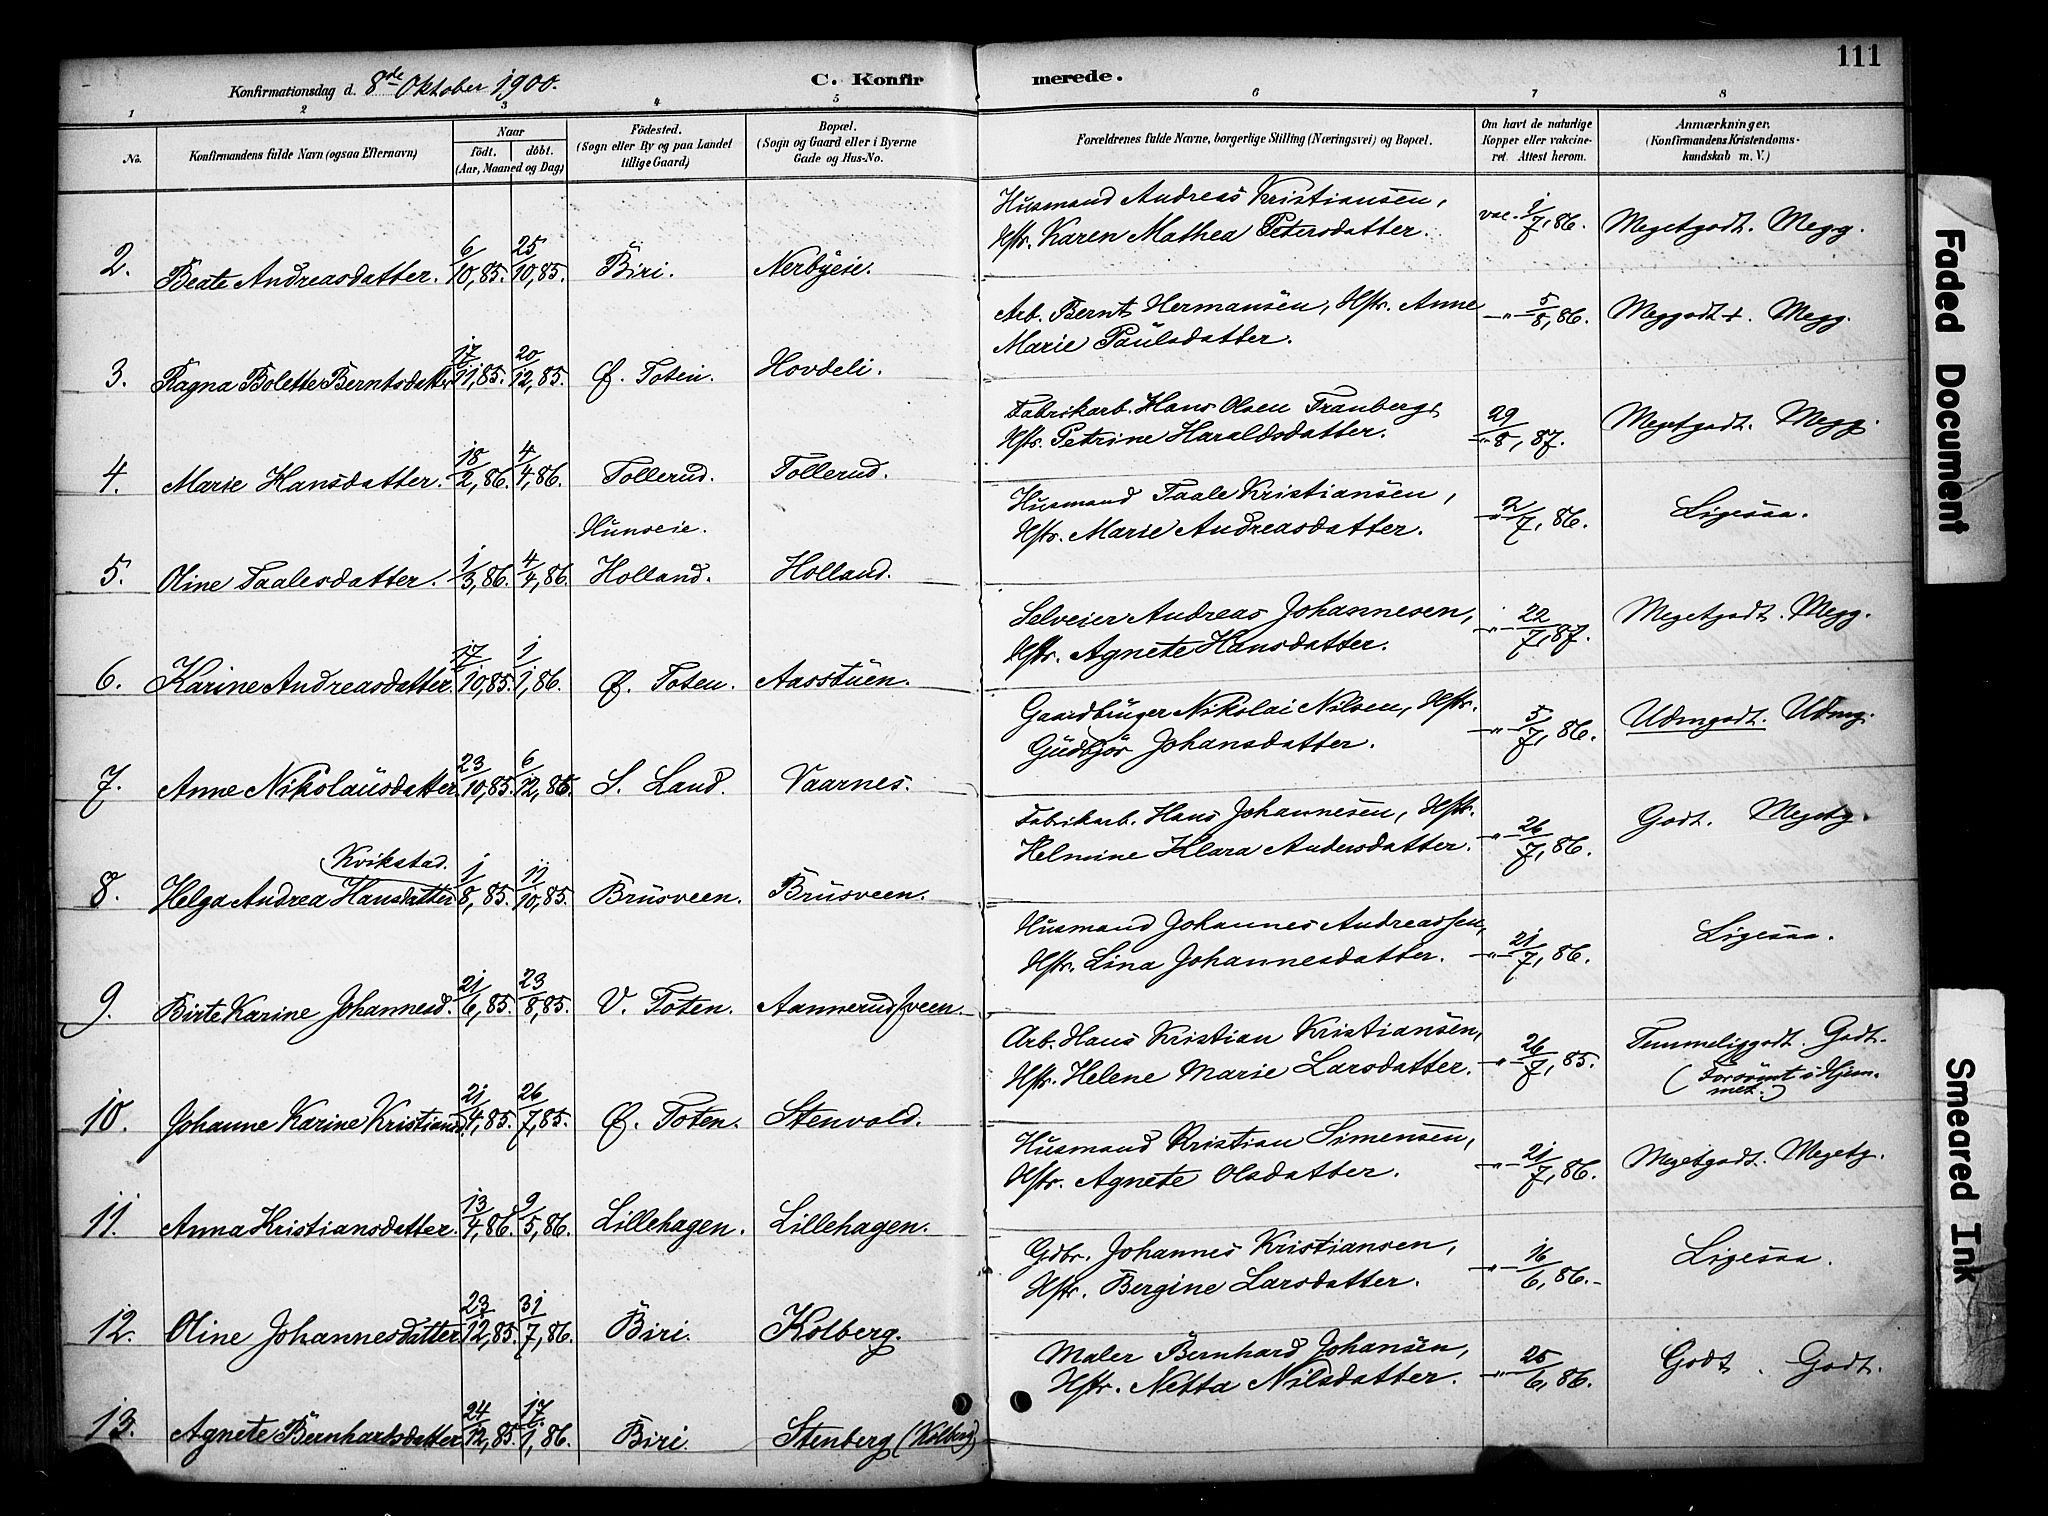 111
Konfirmationsdag d. 8de Oktober 1900.
C. Konfirmerede.
1 2 3 4 5 6 7 8
No.
Konfirmandens fulde Navn (ogsaa Efternavn)
Naar
født. døbt.
(Aar, Maaned og Dag)
Fødested.
(Sogn eller By og paa Landet
tillige Gaard)
Bopæl.
(Sogn og Gaard eller i Byerne
Gade og Hus-No.
Forældrenes fulde Navne, borgerlige Stilling (Næringsvei) og Bopæl.
Om havt de naturlige
Kopper eller vakcine-
ret. Attest herom.
Anmærkninger.
(Konfirmandens Kristendoms-
kundskab m. V.)
Husmand Andreas Kristiansen,
Hstr. Karen Mathea Petersdatter. vac. 2/7, 86. Megetgodt. Megg.
2. Beate Andreasdatter. 6/10, 85. 25/10, 85. Biri. Nerbyeie.
Arb. Bernt Hermansen, Hstr. Anne
Marie Paulsdatter. -"- 5/8, 86. Meggodt +. Megg.
3. Ragna Bolette Berntsdatter 17/11, 85. 20/12, 85. Ø. Toten. Hovdeli.
Fabrikarb. Hans Olsen Tranberg,
Hstr. Petrine Haraldsdatter. 29/8, 87. Megetgodt. Megg.
4. Marie Hansdatter. 18/2, 86. 4/4, 86. Tollerud. Tollerud.
Husmand Taale Kristiansen,
Hstr. Marie Andreasdatter. -"- 2/7, 86. Ligesaa.
Hunseie.
5. Oline Taalesdatter. 1/3, 86. 4/4, 86. Holland. Holland.
Selveier Andreas Johannesen,
Hstr. Agnete Hansdatter. -"- 22/7, 87. Megetgodt. Megg.
6. Karine Andreasdatter. 17/10, 85. 1/1, 86. Ø. Toten. Aasstuen.
Gaardbruger Nikolai Nilsen, Hstr.
Gudbjør Johansdatter. -"- 5/7, 86. Udmgodt. Udmg.
7. Anne Nikolausdatter. 23/10, 85. 6/12, 85. S. Land. Vaarnes.
Fabrikarb. Hans Johannesen, Hstr.
Helmine Klara Andersdatter. -"- 26/7, 86. Godt. Megetg.
Kvikstad.
8. Helga Andrea Hansdatter 1/8, 85. 11/10, 85. Brusveen. Brusveen.
Husmand Johannes Andreassen,
Hstr. Lina Johannesdatter. -"- 21/7, 86. Ligesaa.
9. Birte Karine Johannesd. 21/6, 85. 23/8, 85. V. Toten. Aannerudsveen.
Arb. Hans Kristian Kristiansen,
Hstr. Helene Marie Larsdatter. -"- 26/7, 85. Temmeliggodt. Godt.
(Forsømt i Hjem-
met.)
10. Johanne Karine Kristiansd. 21/4, 85. 26/7, 85. Ø. Toten. Stenvold.
Husmand Kristian Simensen,
Hstr. Agnete Olsdatter. -"- 21/7, 86. Megetgodt. Megetg.
11. Anna Kristiansdatter. 13/4, 86. 9/5, 86. Lillehagen. Lillehagen.
Gdbr. Johannes Kristiansen,
Hstr. Bergine Larsdatter. -"- 16/6, 86. Ligesaa.
12. Oline Johannesdatter 23/12, 85. 31/7, 86. Biri. Kolberg.
Maler Bernhard Johansen,
Hstr. Netta Nilsdatter. -"- 25/6, 86. Godt. Godt.
13. Agnete Bernhardsdatter 24/12, 85. 17/1, 86. Biri. Stenberg (Kolberg)
Faded Document
Smeared Ink